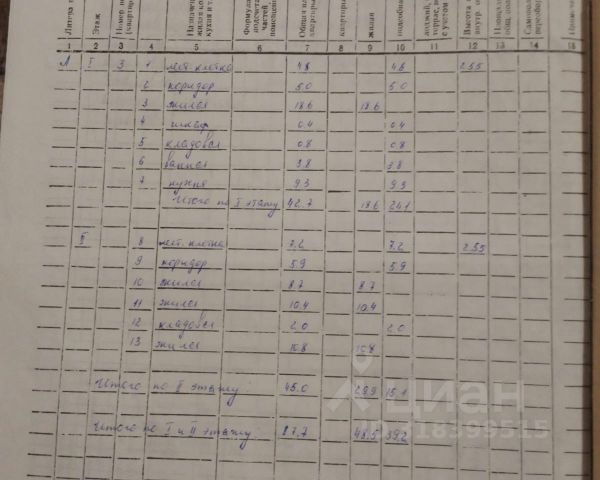 Литера
Этаж
Номер
(квартир
жилая
кухня и т.
подсчета
частей
помещения
Общая
квартиры
квартиры
жилая
подсобная
лоджий,
террас, ве
с учетом
Высота
внутр.
общ.
1 2 3 4 5 6 7 8 9 10 11 12 13 14 15
Л I 3 1 лест. клетка 4.8 4.8 2.55
2 коридор 5.0 5.0
3 жилая 18.6 18.6
4 шкаф 0.4 0.4
5 кладовая 0.8 0.8
6 ванная 3.8 3.8
7 кухня 9.3 9.3
Итого по I этажу 42.7 18.6 24.1
II 8 лест. клетка 7.2 7.2 2.55
9 коридор 5.9 5.9
10 жилая 8.7 8.7
11 жилая 10.4 10.4
12 кладовая 2.0 2.0
13 жилая 10.8 10.8
Итого по II этажу: 45.0 29.9 15.1
Итого по I и II этажу: 87.7 48.5 39.2
циан